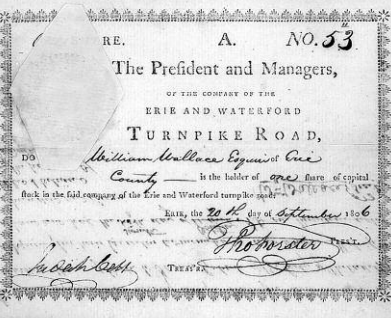 RE. A. NO. 53
The President and Managers,
OF THE COMPANY OF THE
ERIE AND WATERFORD
TURNPIKE ROAD,
DO William Wallace Esquire of Erie
County — is the holder of one share of capital
stock in the said company of the Erie and Waterford turnpike road:
ERIE, the 20th day of September 1806
Tho Forster PRES'T.
Judah Colt TREAS'R.